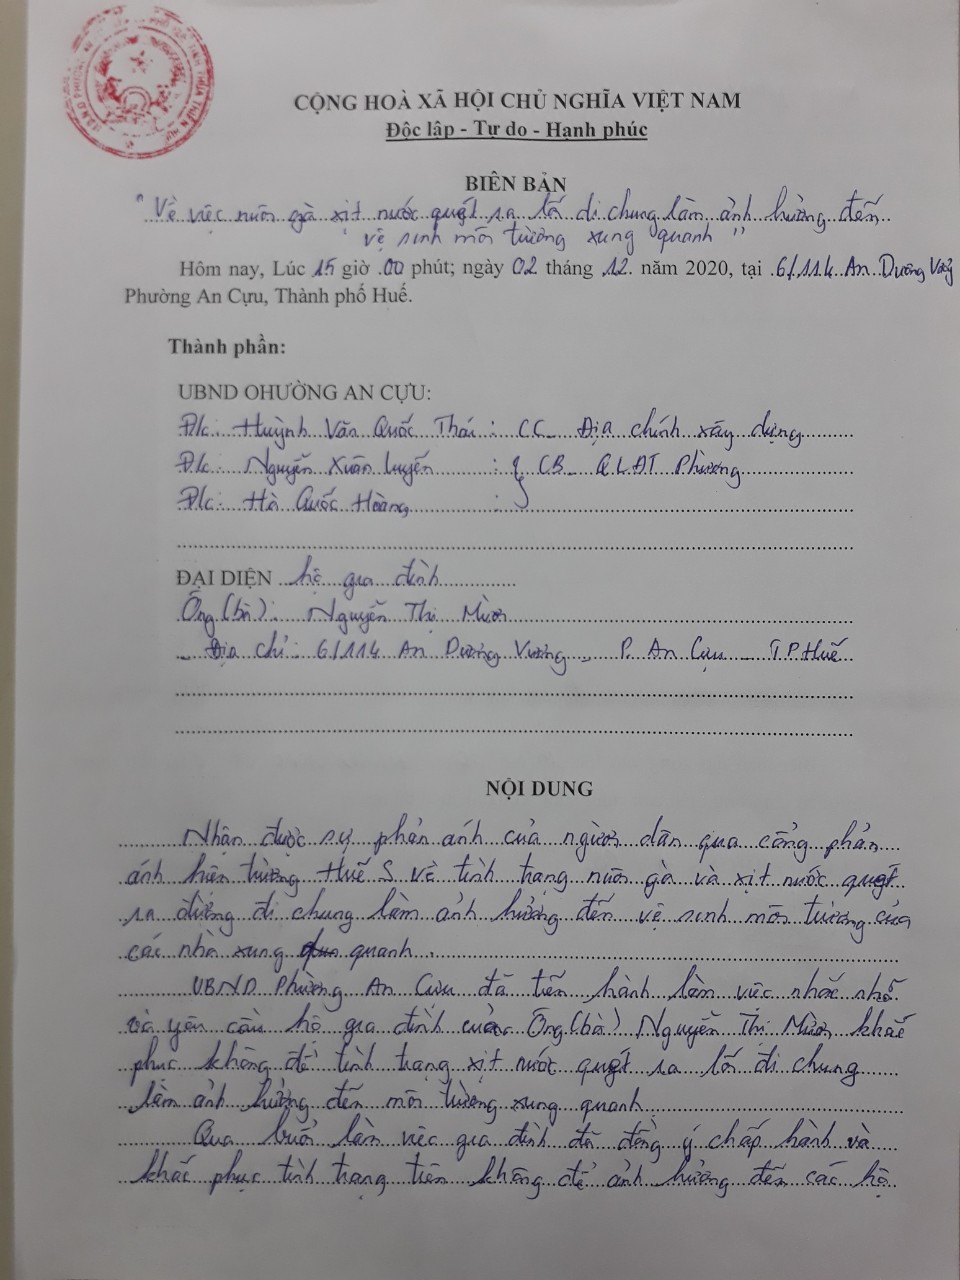 CỘNG HOÀ XÃ HỘI CHỦ NGHĨA VIỆT NAM
Độc lập - Tự do - Hạnh phúc
BIÊN BẢN
"Về việc nuôi gà xịt nước quét ra lối đi chung làm ảnh hưởng đến
vệ sinh môi trường xung quanh"
Hôm nay, Lúc 15 giờ 00 phút; ngày 02 tháng 12 năm 2020, tại 6/114 An Dương Vương
Phường An Cựu, Thành phố Huế.
Thành phần:
UBND OHƯỜNG AN CỰU:
Đ/c: Huỳnh Văn Quốc Thái: CC Địa chính xây dựng
Đ/c: Nguyễn Xuân Luyến : CB QLĐT Phường
Đ/c: Hồ Quốc Hoàng :
ĐẠI DIỆN hộ gia đình
Ông (bà): Nguyễn Thị Mười
- Địa chỉ: 6/114 An Dương Vương, P. An Cựu - TP Huế
NỘI DUNG
Nhận được sự phản ánh của người dân qua cổng phản
ánh hiện trường Huế S về tình trạng nuôi gà và xịt nước quét
ra đường đi chung làm ảnh hưởng đến vệ sinh môi trường của
các nhà xung quanh.
UBND Phường An Cựu đã tiến hành làm việc nhắc nhở
và yêu cầu hộ gia đình của Ông (bà) Nguyễn Thị Mười khắc
phục không để tình trạng xịt nước quét ra lối đi chung
làm ảnh hưởng đến môi trường xung quanh
Qua buổi làm việc gia đình đã đồng ý chấp hành và
khắc phục tình trạng trên không để ảnh hưởng đến các hộ